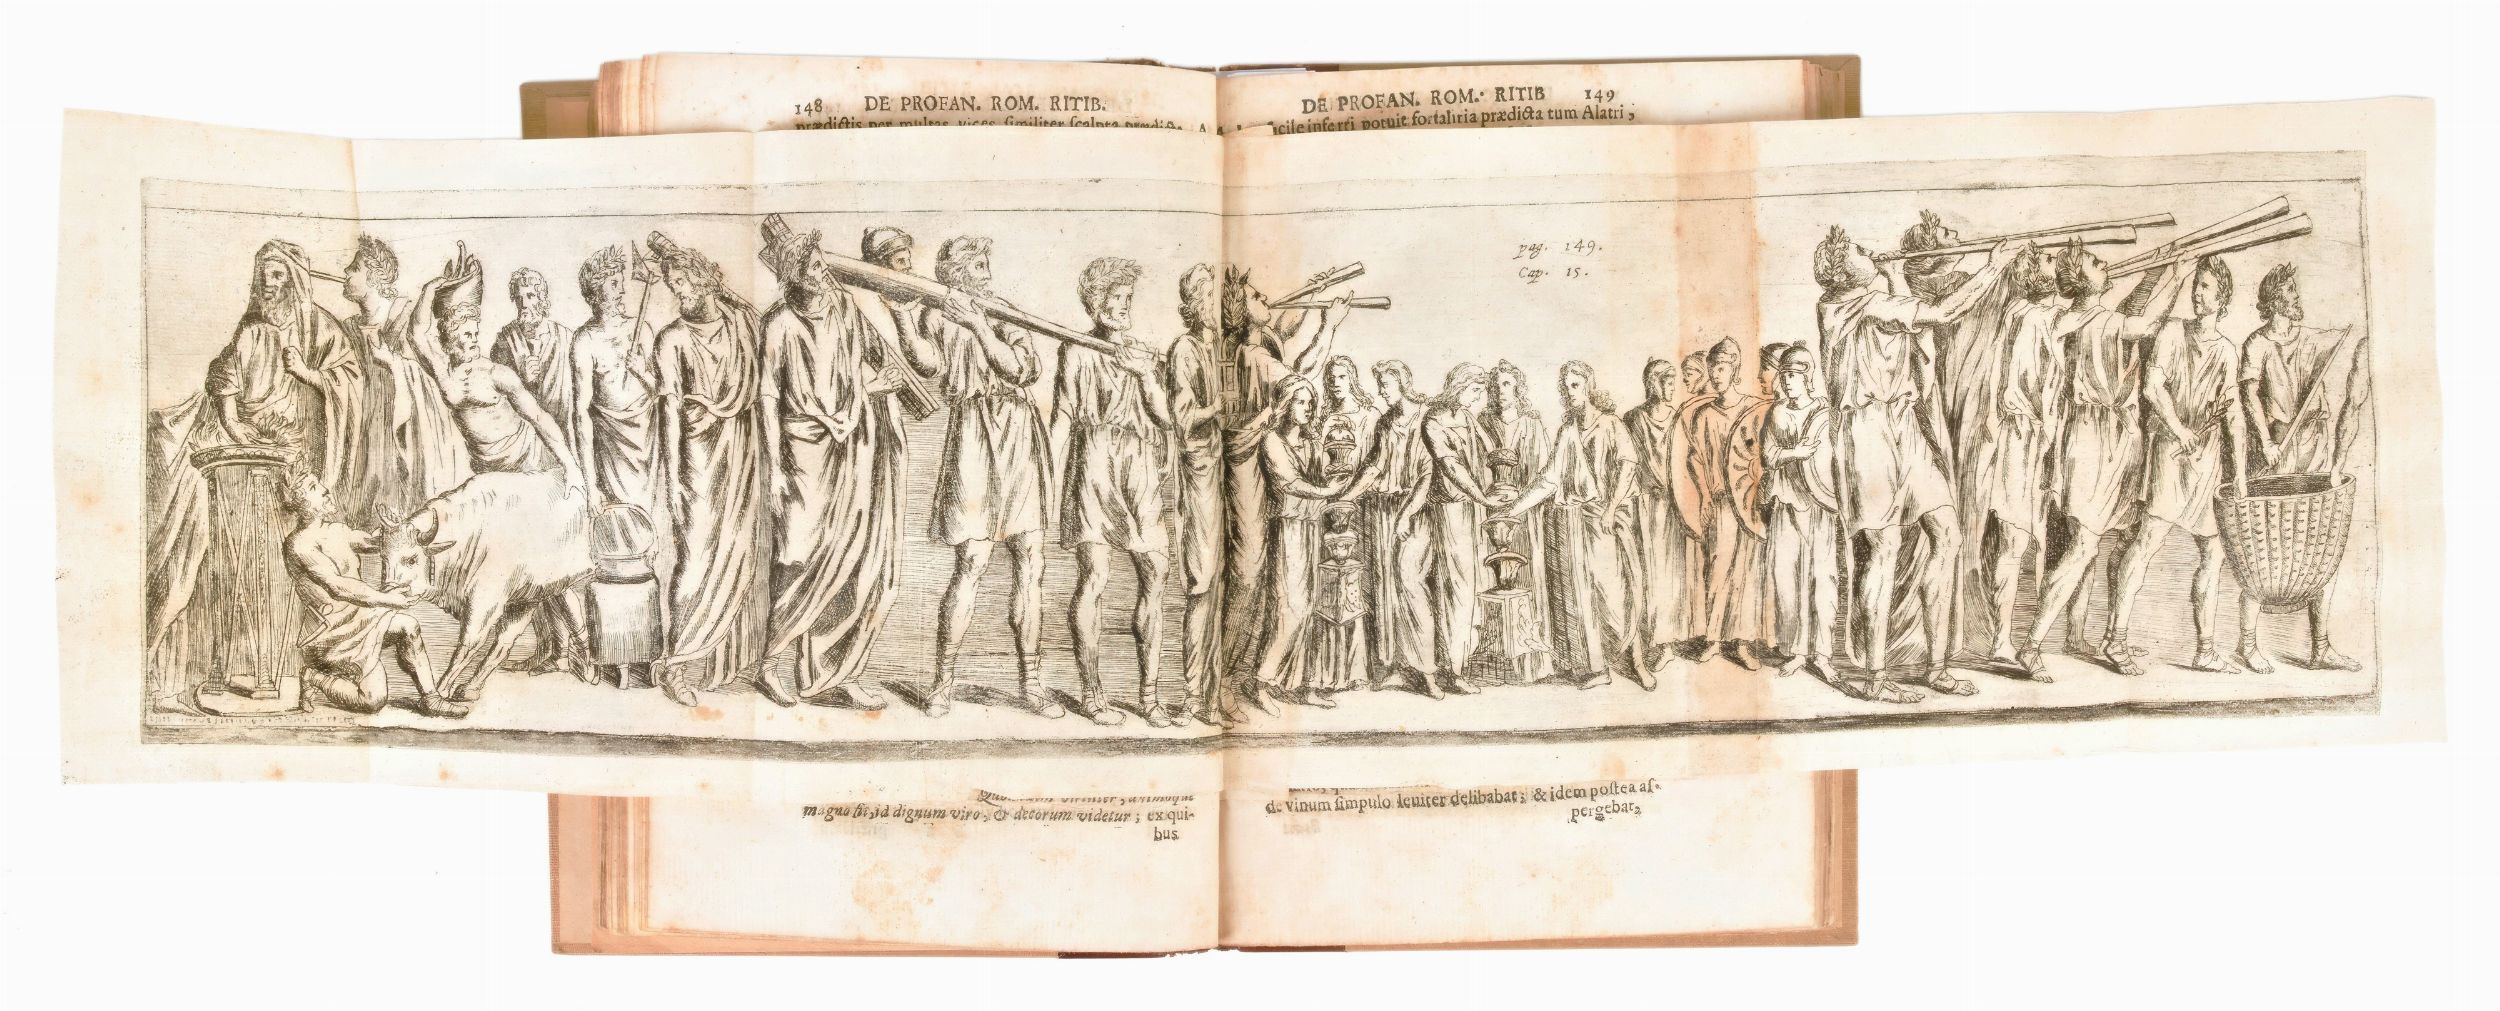 148 DE PROFAN. ROM. RITIB.
prædictis per multas vices similiter scalpta
DE PROFAN. ROM. RITIB 149
inferri potuit fortalitia prædicta tum Alatri;
pag. 149.
Cap. 15.
magno fit, id dignum viro, & decorum videtur; ex qui-
bus
de vinum simpulo leuiter delibabat; & idem postea as-
pergebat,